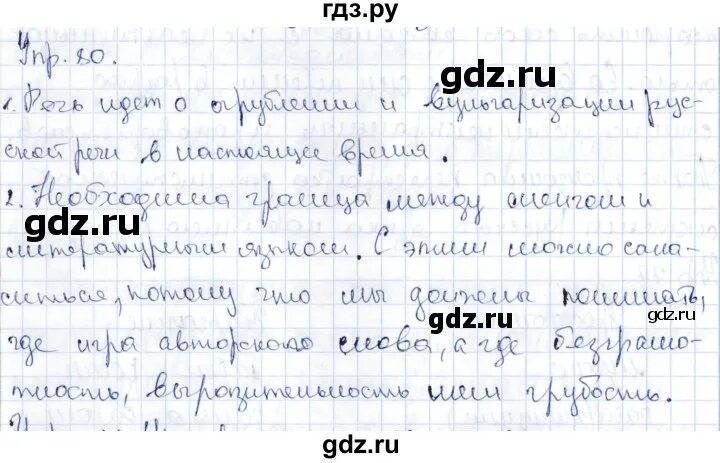 гдз.ру
Упр. 80.
gdz.ru
1. Речь идет о огрублении и вульгаризации рус-
ской речи в настоящее время.
gdz.ru
2. Необходима граница между сленгом и
gdz.ru
литературным языком. С этим можно согла-
ситься, потому что мы должны понимать,
gdz.ru
gdz.ru
где игра авторского слова, а где безграмо-
gdz.ru
тность, выразительность или грубость.
gdz.ru